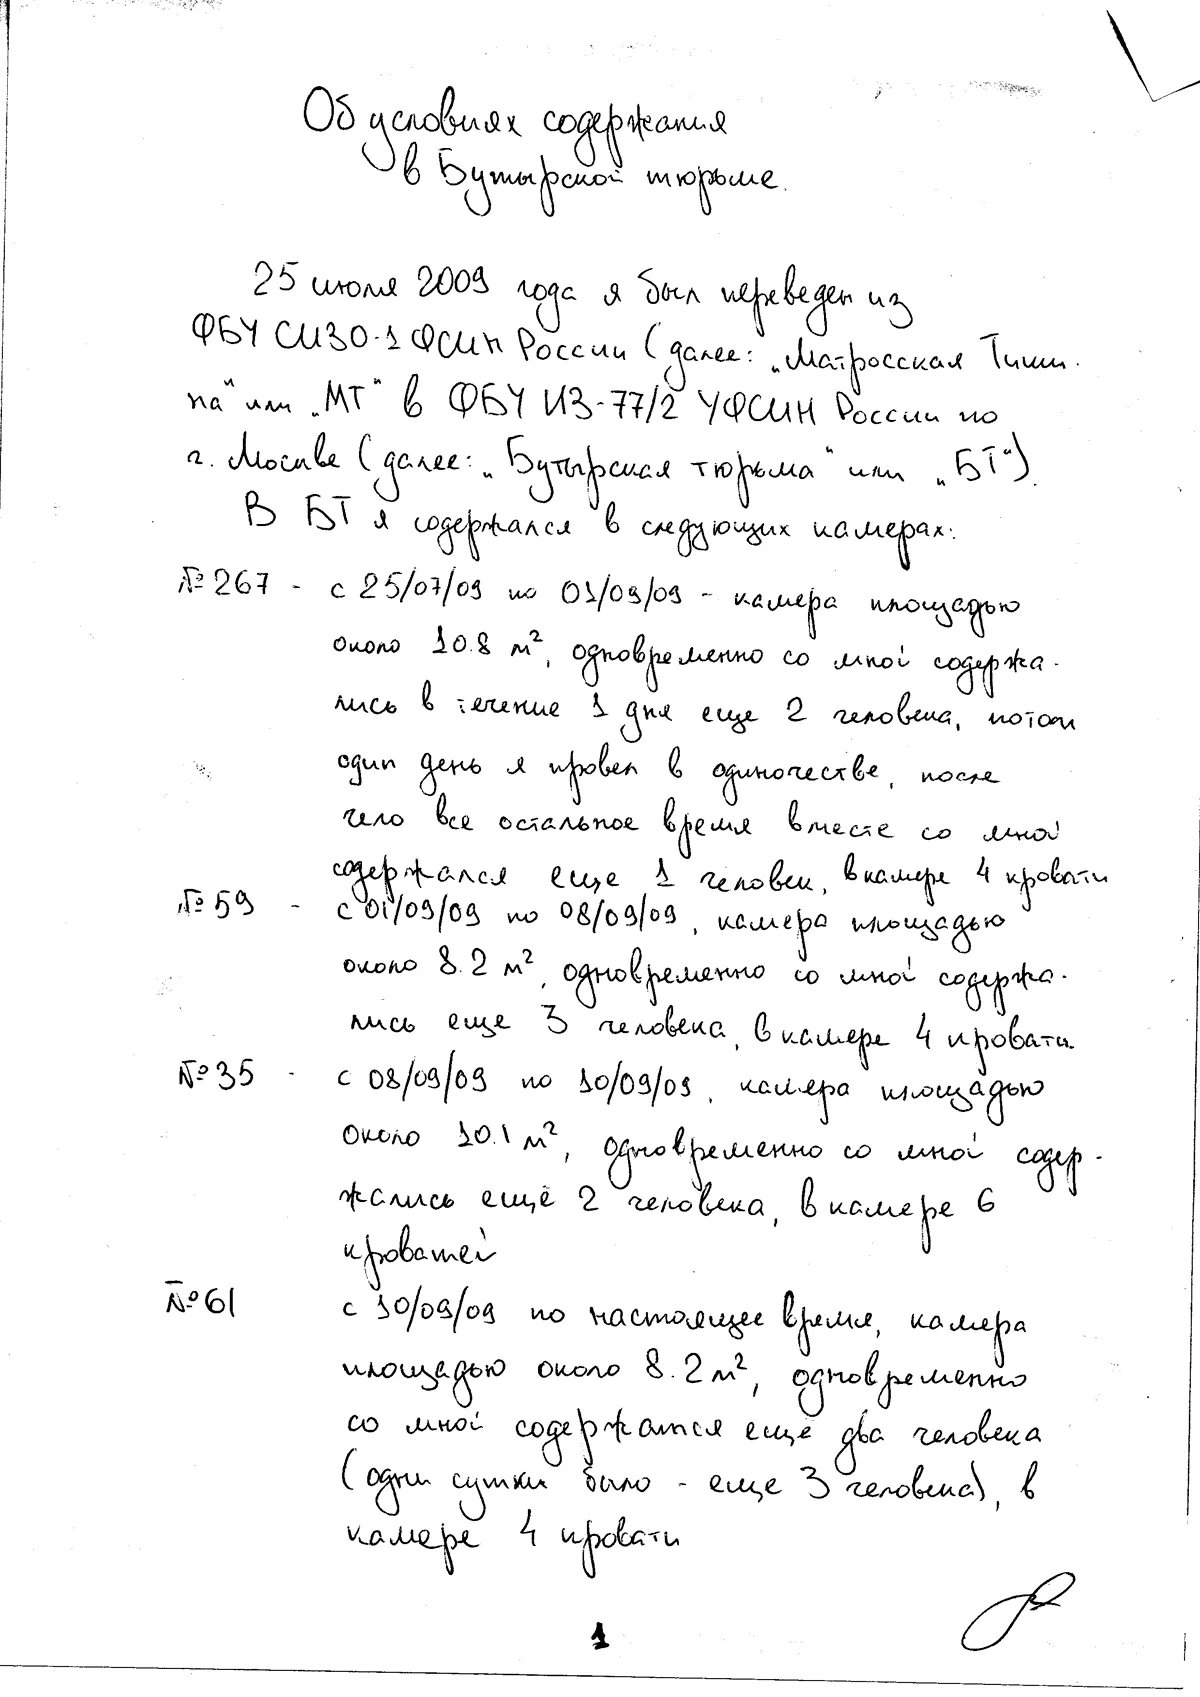 Об условиях содержания
в Бутырской тюрьме.
25 июля 2009 года я был переведен из
ФБУ СИЗО-1 ФСИН России (далее: „Матросская Тиши-
на" или „МТ" в ФБУ ИЗ-77/2 УФСИН России по
г. Москве (далее: „Бутырская тюрьма" или „БТ").
В БТ я содержался в следующих камерах:
№267 - с 25/07/09 по 01/09/09 - камера площадью
около 10.8 м², одновременно со мной содержа-
лись в течение 1 дня еще 2 человека, потом
один день я провел в одиночестве, после
чего все остальное время вместе со мной
содержался еще 1 человек, в камере 4 кровати
№59 - с 01/09/09 по 08/09/09, камера площадью
около 8.2 м², одновременно со мной содержа-
лись еще 3 человека, в камере 4 кровати.
№35 - с 08/09/09 по 10/09/09, камера площадью
около 10.1 м², одновременно со мной содер-
жались ещё 2 человека, в камере 6
кроватей
№61 с 10/09/09 по настоящее время, камера
площадью около 8.2 м², одновременно
со мной содержатся ещё два человека
(одни сутки было - еще 3 человека), в
камере 4 кровати
1